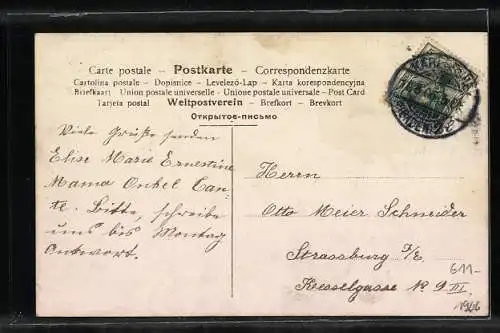 Carte postale – Postkarte – Correspondenzkarte
Cartolina postale – Dopisnice – Levelező-Lap – Karta korespondencyjna
Briefkaart Union postale universelle - Unione postale universale - Post Card
Tarjeta postal Weltpostverein – Brefkort – Brevkort
Открытое-письмо
Viele Grüße senden
Elise Marie Ernestine
Mama Onkel Tan-
te. Bitte, schreibe
uns bis Montag
Antwort.
Herrn
Otto Meier Schneider
Strassburg i/E
Kesselgasse No 9 III.
611-